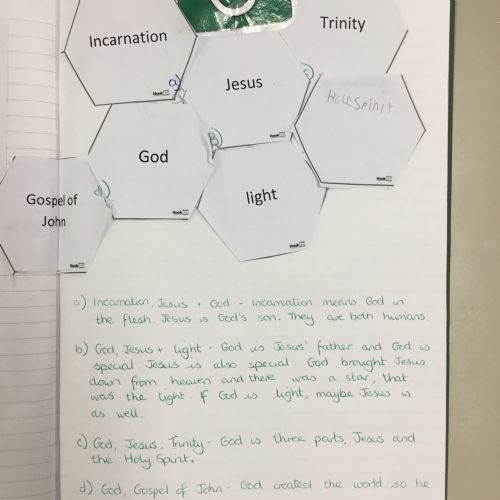 Incarnation
Trinity
Jesus
a)
c)
Hole Spirit
God
B)
d)
Gospel of
John
light
a) Incarnation, Jesus + God - Incarnation means God in
the flesh. Jesus is God's son. They are both humans.
b) God, Jesus + light - God is Jesus' father and God is
special. Jesus is also special. God brought Jesus
down from heaven and there was a star, that
was the light. If God is light, maybe Jesus is
as well.
c) God, Jesus, Trinity - God is three parts, Jesus and
the Holy Spirit.
d) God, Gospel of John - God created the world so he